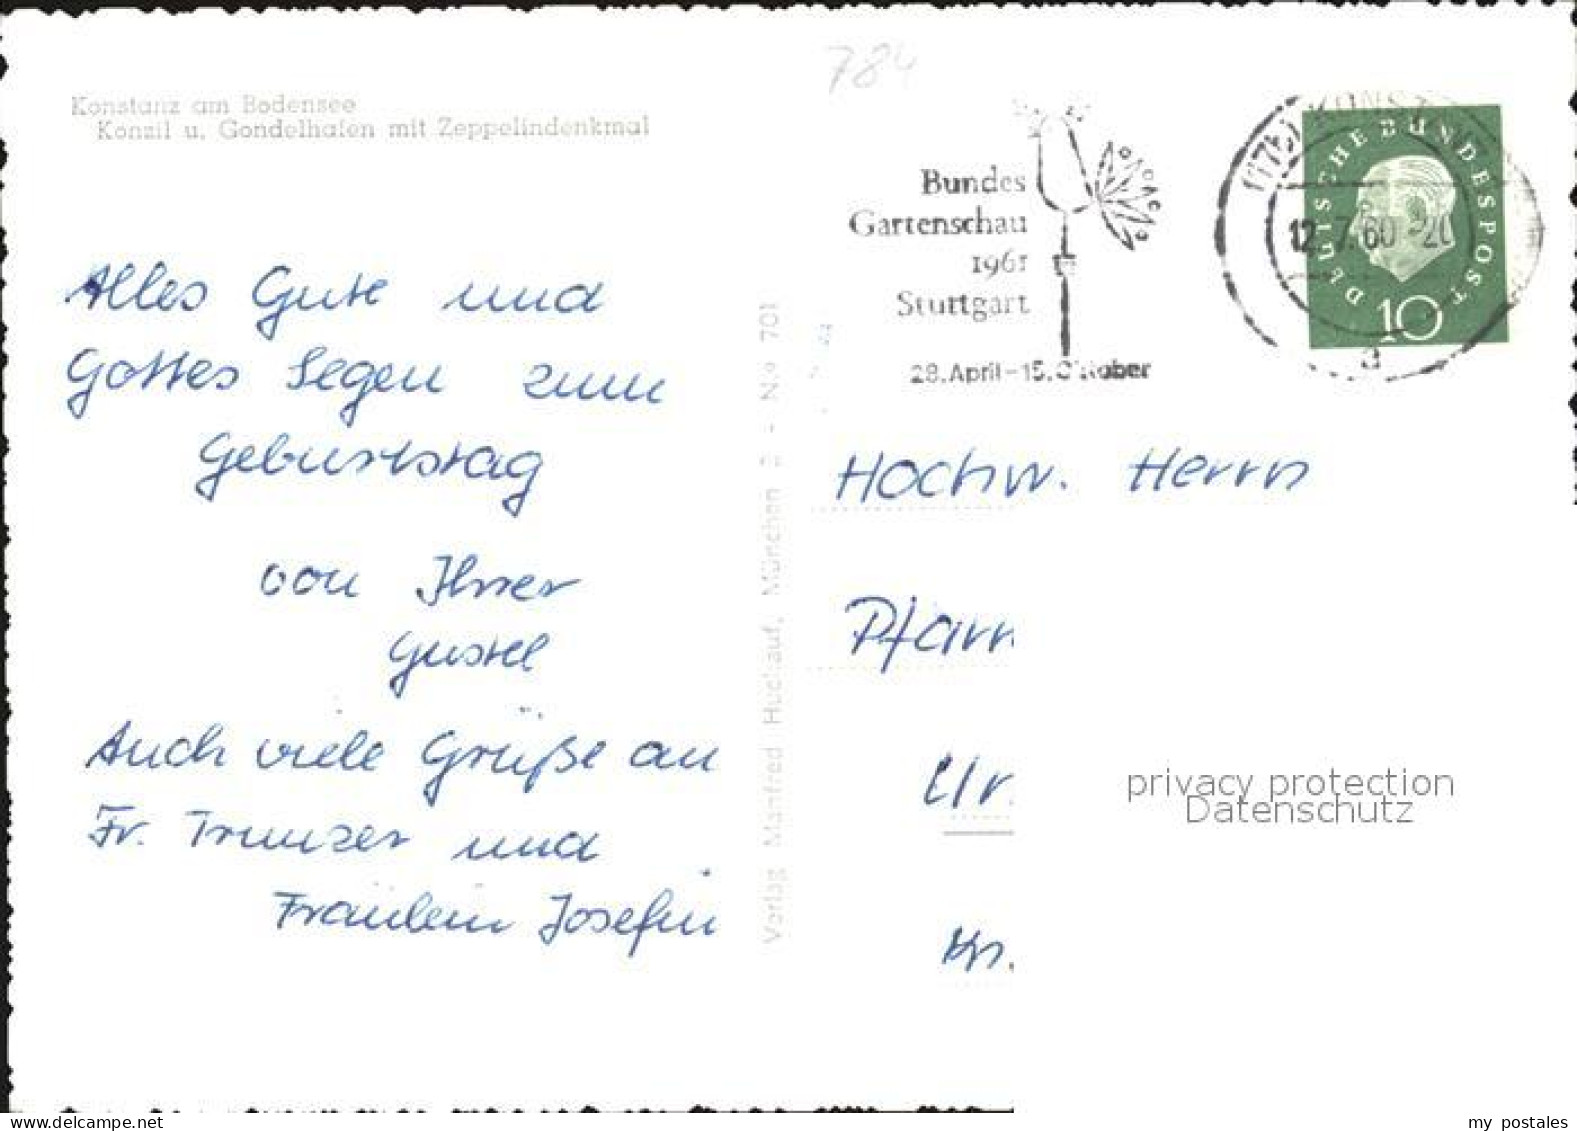 784
Konstanz am Bodensee
Konzil u. Gondelhafen mit Zeppelindenkmal
Alles Gute und
Gottes Segen zum
Geburtstag
von Ihrer
Gustel
Auch viele Grüße an
Fr. Trunzer und
Fräulein Josefin
Verlag Manfred Huchauf, München 2 - N.º 701
Bundes
Gartenschau
1961
Stuttgart
28. April - 15. Oktober
(17b) KONSTANZ
12.-7.60 - 20
a
DEUTSCHE BUNDESPOST
10
Hochw. Herrn
Pfarr
Ur.
Kr.
privacy protection
Datenschutz
www.delcampe.net
my postales